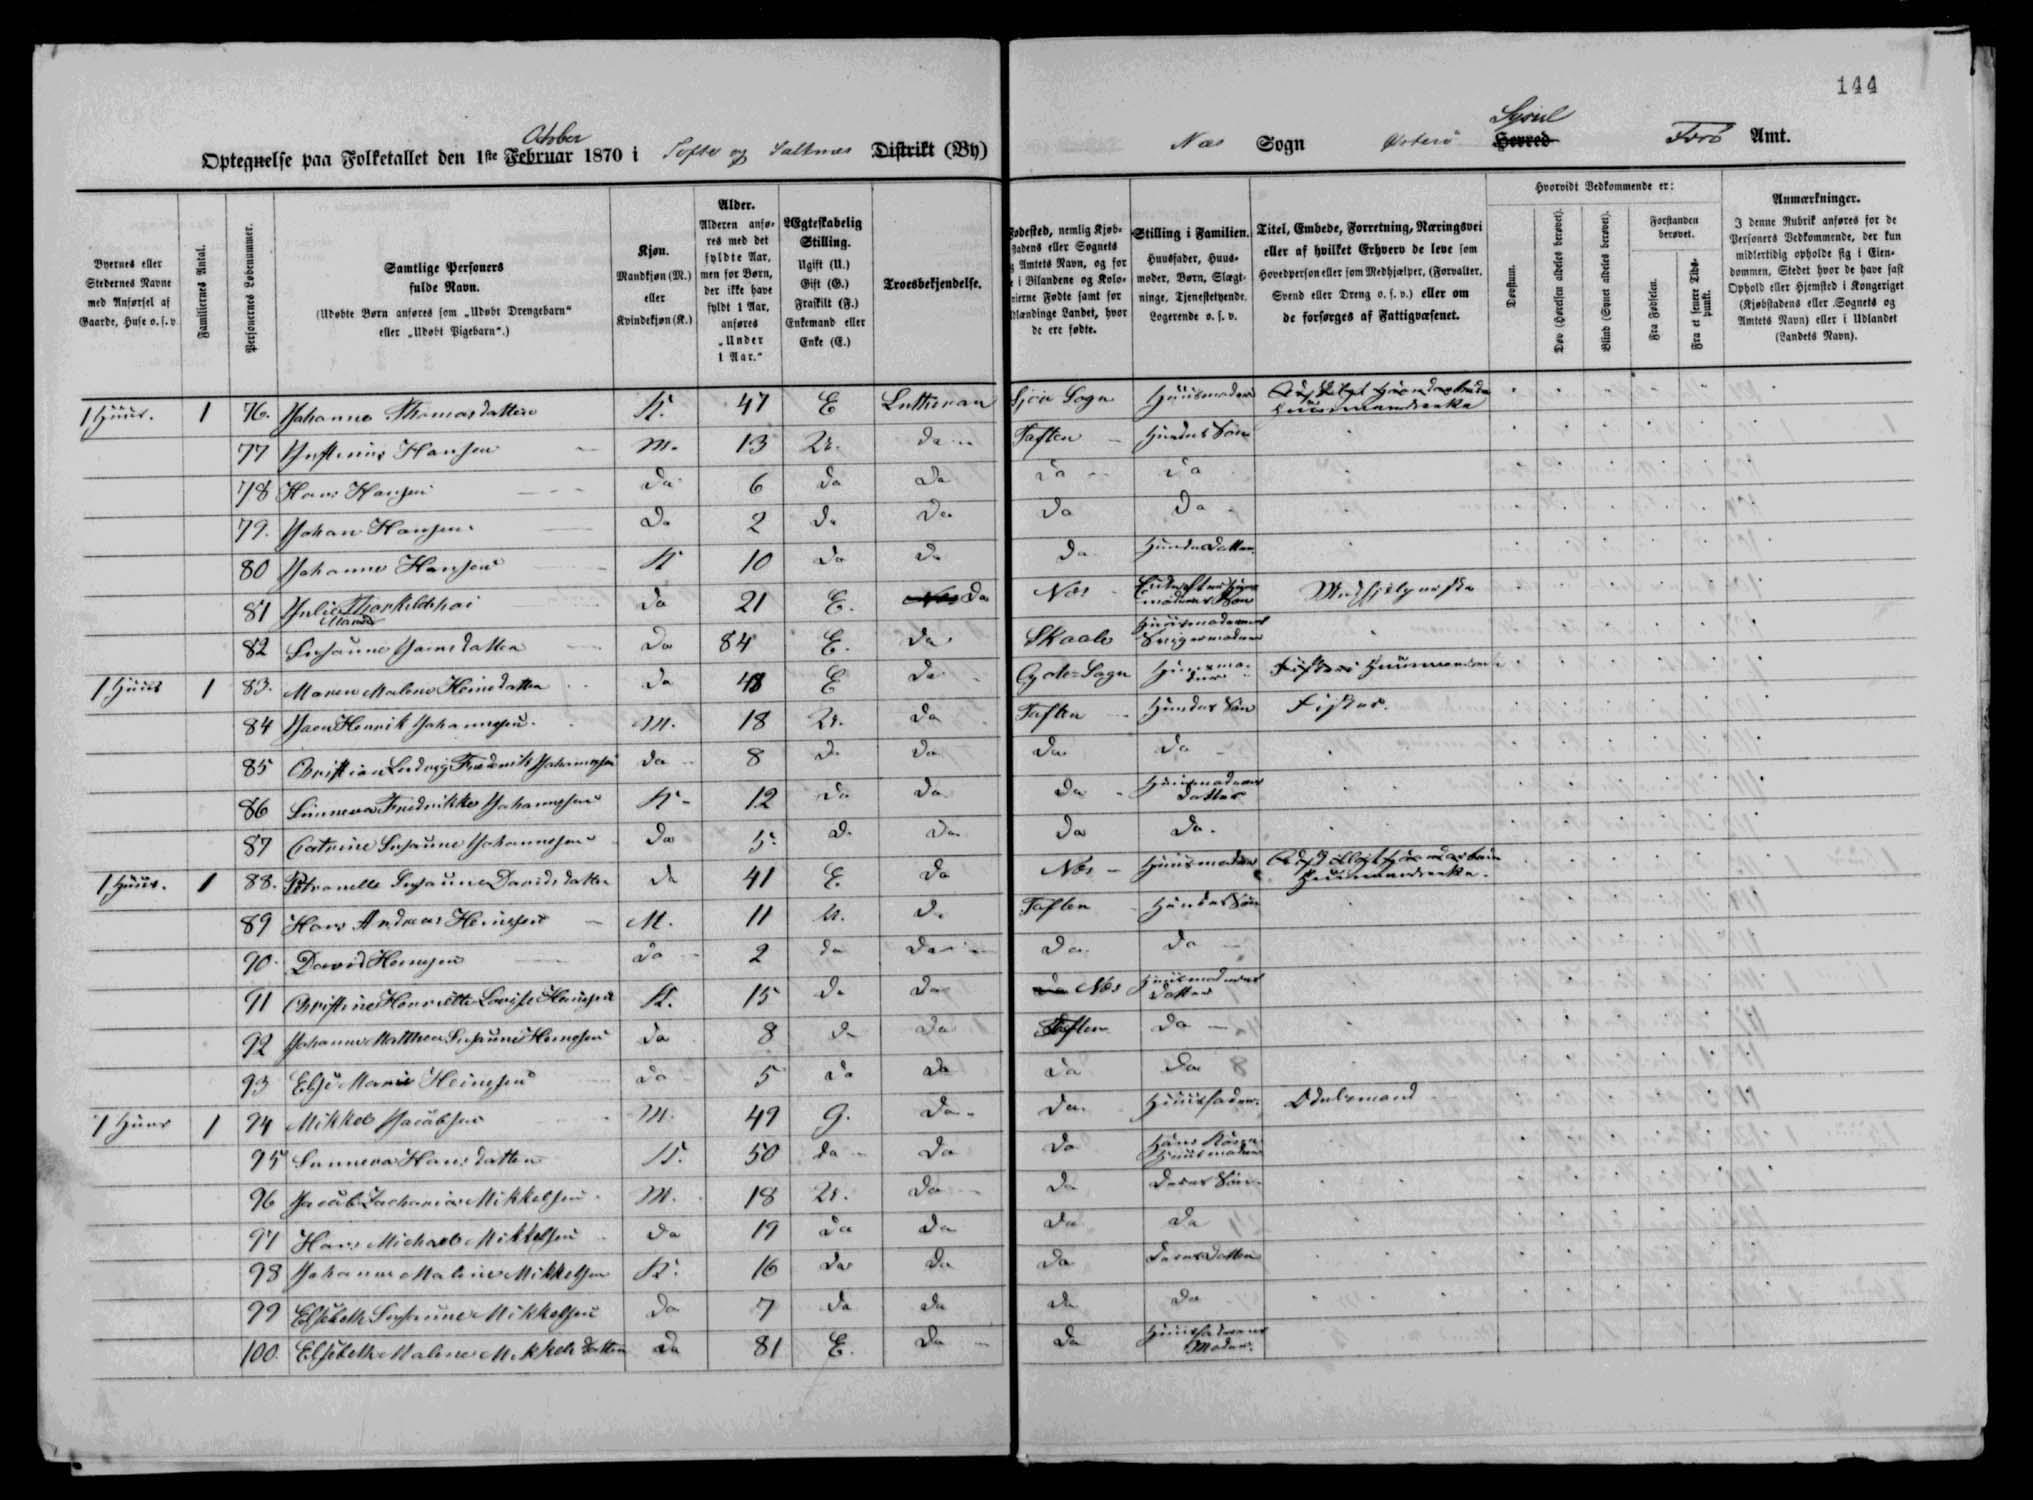 144
Optegnelse paa Folketallet den 1ste Februar Octbr 1870 i Tofte og Saltnæs Distrikt (By) Næs Sogn Østerø Herred Sysul Færø Amt.
Byernes eller Stedernes Navne med Anførsel af Gaarde, Huse o. s. v.
Familiernes Antal.
Personernes Løbenummer.
Samtlige Personers fulde Navn. (Udøbte Børn anføres som „Udøbt Drengebarn“ eller „Udøbt Pigebarn“.)
Kjøn. Mandkjøn (M.) eller Kvindekjøn (K.)
Alder. Alderen anføres med det fyldte Aar, men for Børn, der ikke have fyldt 1 Aar, anføres „Under 1 Aar.“
Ægteskabelig Stilling. Ugift (U.) Gift (G.) Fraskilt (F.) Enkemand eller Enke (E.)
Troesbekjendelse.
Fødested, nemlig Kjøbstadens eller Sognets og Amtets Navn, og for de i Bilandene og Kolonierne Fødte samt for Udlændinge Landet, hvor de ere fødte.
Stilling i Familien. Huusfader, Huusmoder, Børn, Slægtninge, Tjenestetyende, Logerende o. s. v.
Titel, Embede, Forretning, Næringsvei eller af hvilket Erhverv de leve som Hovedperson eller som Medhjælper, (Forvalter, Svend eller Dreng o. s. v.) eller om de forsørges af Fattigvæsenet.
Hvorvidt Vedkommende er:
Døvstum.
Døv (Hørelsen aldeles berøvet).
Blind (Synet aldeles berøvet).
Forstanden berøvet.
Fra Fødselen.
Fra et senere Tidspunkt.
Anmærkninger. I denne Rubrik anføres for de Personers Vedkommende, der kun midlertidig opholde sig i Eiendommen, Stedet hvor de have fast Ophold eller Hjemsted i Kongeriget (Kjøbstadens eller Sognets og Amtets Navn) eller i Udlandet (Landets Navn).
1 Huus. 1 76. Johanne Thomasdatter K. 47 E Lutheran Sjov Sogn Huusmoder Huusmandsenke
77 Justinus Hansen M. 13 U. do Toften Hendes Søn
78 Hans Hansen do 6 do do do do
79. Johan Hansen do 2 do do do do
80 Johanne Hansen K 10 do do do Hendes Datter
81 Julie Maria Thorkildshøi do 21 E. do Næs Medhjelperske
82 Susanne Joensdatter do 84 E. do Skaale Huusmoderens Svigermoder
1 Huus 1 83. Maren Malene Heinesdatter do 48 E do Gøte Sogn Huusmoder
84 Joen Henrik Johannesen M. 18 U. do Toften Hendes Søn Fisker.
85 Christian Ludvig Frederik Johannesen do 8 do do do do
86 Sunneva Fredrikke Johannesen K. 12 do do do Huusmoderens Datter
87 Catrine Susanne Johannesen do 5. do do do do
1 Huus. 1 88. Petronelle Susanne Davidsdatter do 41 E. do Næs Huusmoder Huusmandsenke.
89 Hans Andreas Heinesen M. 11 U. do Toften Hendes Søn
90. David Heinesen do 2 do do do do
91 Christine Henriette Lovise Heinesen K. 15 do do do Næs Huusmoderens Datter
92 Johanne Matthea Susanne Heinesen do 8 do do Toften do
93 Else Marie Heinesen do 5 do do do do
1 Huus 1 94 Mikkel Jacobsen M. 49 G. do do Huusfader. Odelsmand
95 Sunneva Hansdatter K. 50 do do do Hans Kone Huusmoder
96 Jacob Zacharias Mikkelsen M. 18 U. do do deres Søn
97 Hans Michael Mikkelsen do 19 do do do do
98 Johanne Malene Mikkelsen K. 16 do do do deres Datter
99 Elsebeth Susanne Mikkelsen do 7 do do do do
100. Elsebeth Malene Mikkelsdatter do 81 E. do do Huusfaderens Moder.